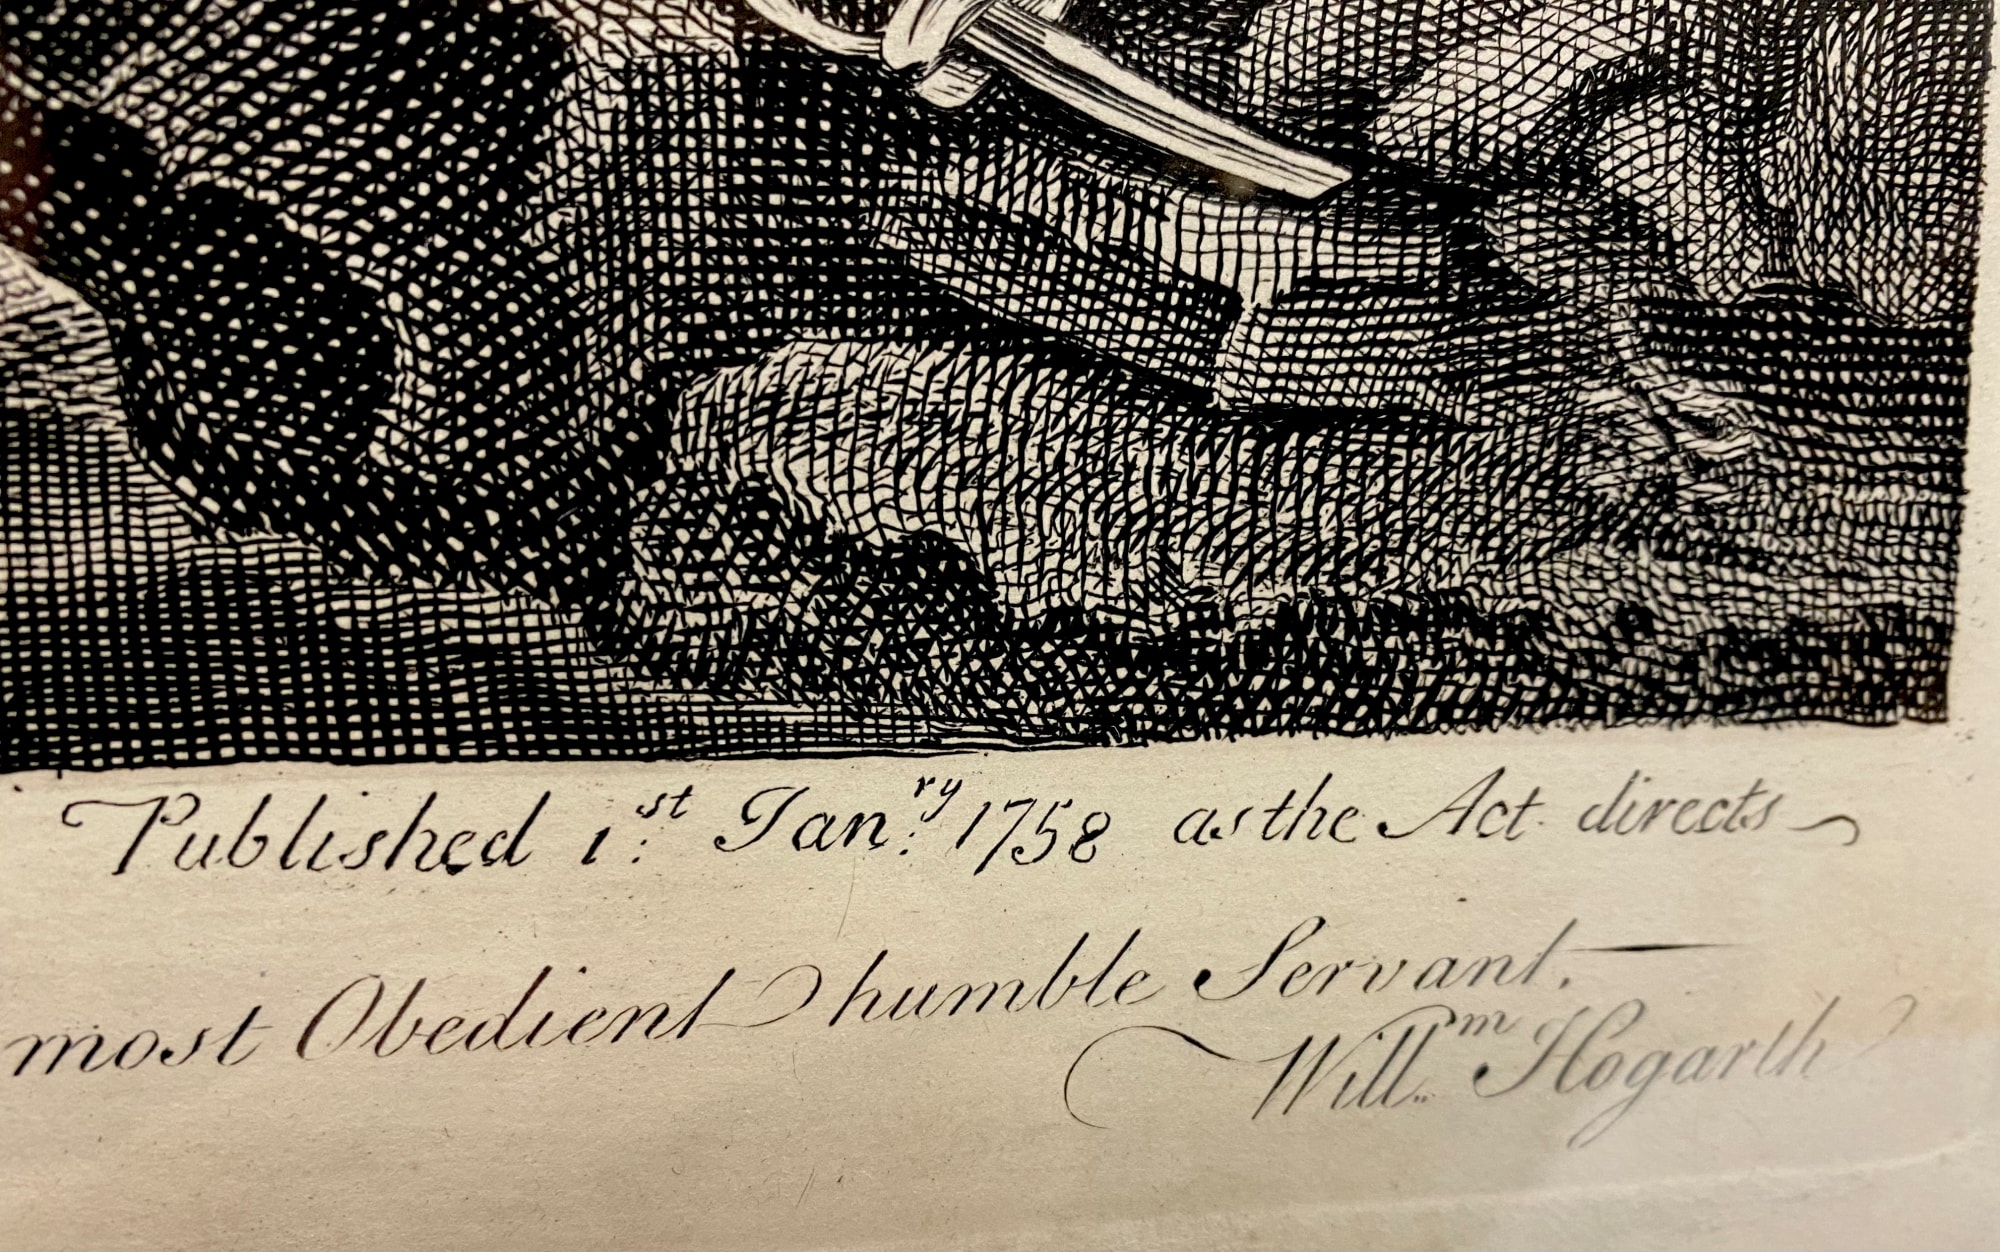 Published 1.st Jan.ry 1758 as the Act directs
most Obedient humble Servant.
Will.m Hogarth